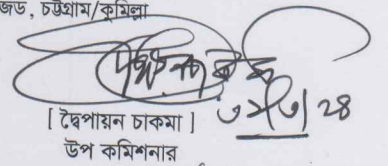 জড, চট্টগ্রাম/কুমিল্লা
[ দ্বৈপায়ন চাকমা ]
উপ কমিশনার